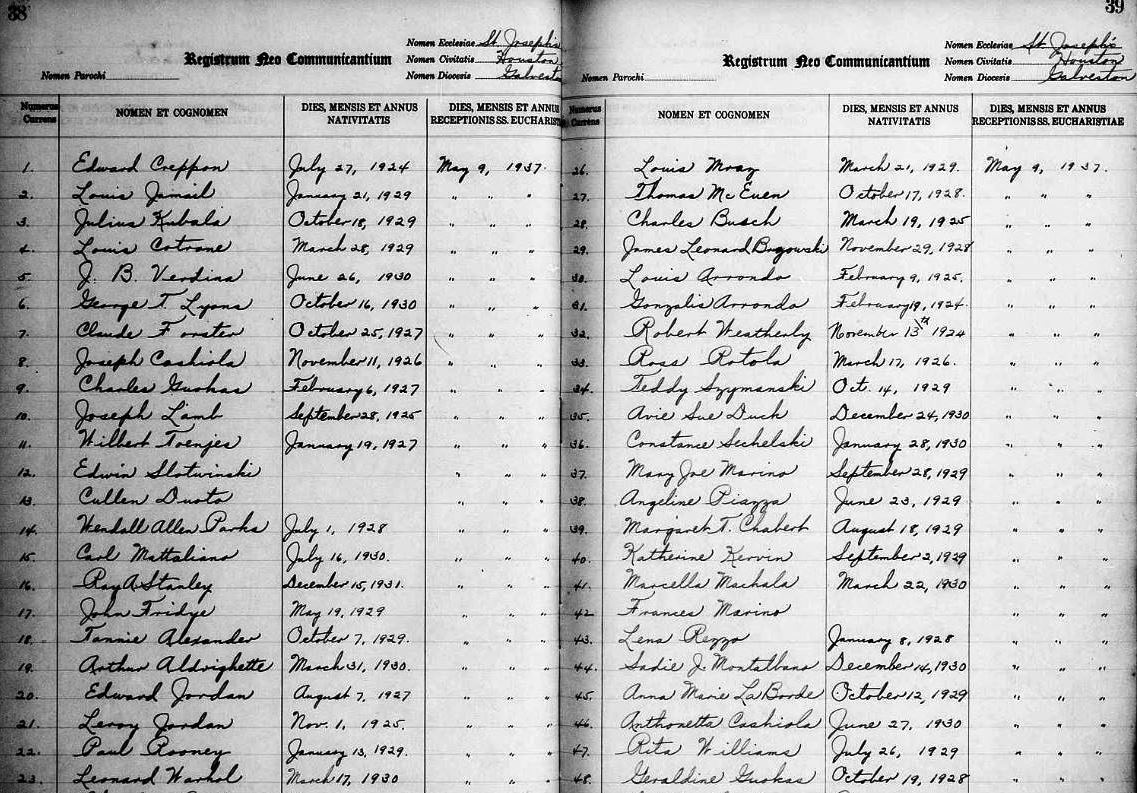 38
Nomen Ecclesiae St. Joseph's
Registrum Neo Communicantium
Nomen Civitatis Houston
Nomen Parochi
Nomen Dioecis Galvest
Numerus Currens NOMEN ET COGNOMEN DIES, MENSIS ET ANNUS NATIVITATIS DIES, MENSIS ET ANNUS RECEPTIONIS SS. EUCHARISTIAE
1. Edward Creppon July 27, 1924 May 9, 1937.
2. Louis Jamail January 21, 1929 " " "
3. Julius Kubala October 18, 1929 " " "
4. Louis Cotrone March 28, 1929 " " "
5. J. B. Verdina June 26, 1930 " " "
6. George T. Lyons October 16, 1930 " " "
7. Claude Forster October 25, 1927 " " "
8. Joseph Cashiola November 11, 1926 " " "
9. Charles Guokas February 6, 1927 " " "
10. Joseph Lamb September 28, 1925 " " "
11. Wilbert Toenjes January 19, 1927 " " "
12. Edwin Slotwinski " " "
13. Cullen Duoto " " "
14. Wendall Allen Parks July 1, 1928 " " "
15. Carl Mattaliano July 16, 1930. " " "
16. Ray A. Stanley December 15, 1931. " " "
17. John Fridye May 19, 1929 " " "
18. Tannie Alexander October 7, 1929. " " "
19. Arthur Aldrighette March 31, 1930. " " "
20. Edward Jordan August 7, 1927 " " "
21. Leroy Jordan Nov. 1, 1925. " " "
22. Paul Rooney January 13, 1929. " " "
23. Leonard Warhol March 17, 1930 " " "
39
Nomen Ecclesiae St. Joseph's
Registrum Neo Communicantium
Nomen Civitatis Houston
Nomen Parochi
Nomen Diocesis Galveston
Numerus Currens NOMEN ET COGNOMEN DIES, MENSIS ET ANNUS NATIVITATIS DIES, MENSIS ET ANNUS RECEPTIONIS SS. EUCHARISTIAE
26. Louis March 21, 1929. May 9, 1937.
27. Thomas McEuen October 17, 1928. " " "
28. Charles Busch March 19, 1925 " " "
29. James Leonard Brzowski November 29, 1928 " " "
30. Louis Arrondo February 9, 1925. " " "
31. Gonzalis Arrondo February 19, 1924. " " "
32. Robert Weatherly November 13th 1924 " " "
33. Ross Rotola March 17, 1926. " " "
34. Teddy Szymanski Oct. 14, 1929 " " "
35. Avie Sue Duck December 24, 1930 " " "
36. Constance Sechelski January 28, 1930 " " "
37. Mary Joe Marino September 28, 1929 " " "
38. Angeline Piazza June 23, 1929 " " "
39. Margaret T. Chabert August 18, 1929 " " "
40. Katherine Kervin September 2, 1929 " " "
41. Marcella Machala March 22, 1930 " " "
42. Frances Marino " " "
43. Lena Rezzo January 8, 1928 " " "
44. Sadie J. Montalbano December 14, 1930 " " "
45. Anna Marie LaBorde October 12, 1929 " " "
46. Anthonetta Cashiola June 27, 1930 " " "
47. Rita Williams July 26, 1929 " " "
48. Geraldine Guokas October 19, 1928 " " "